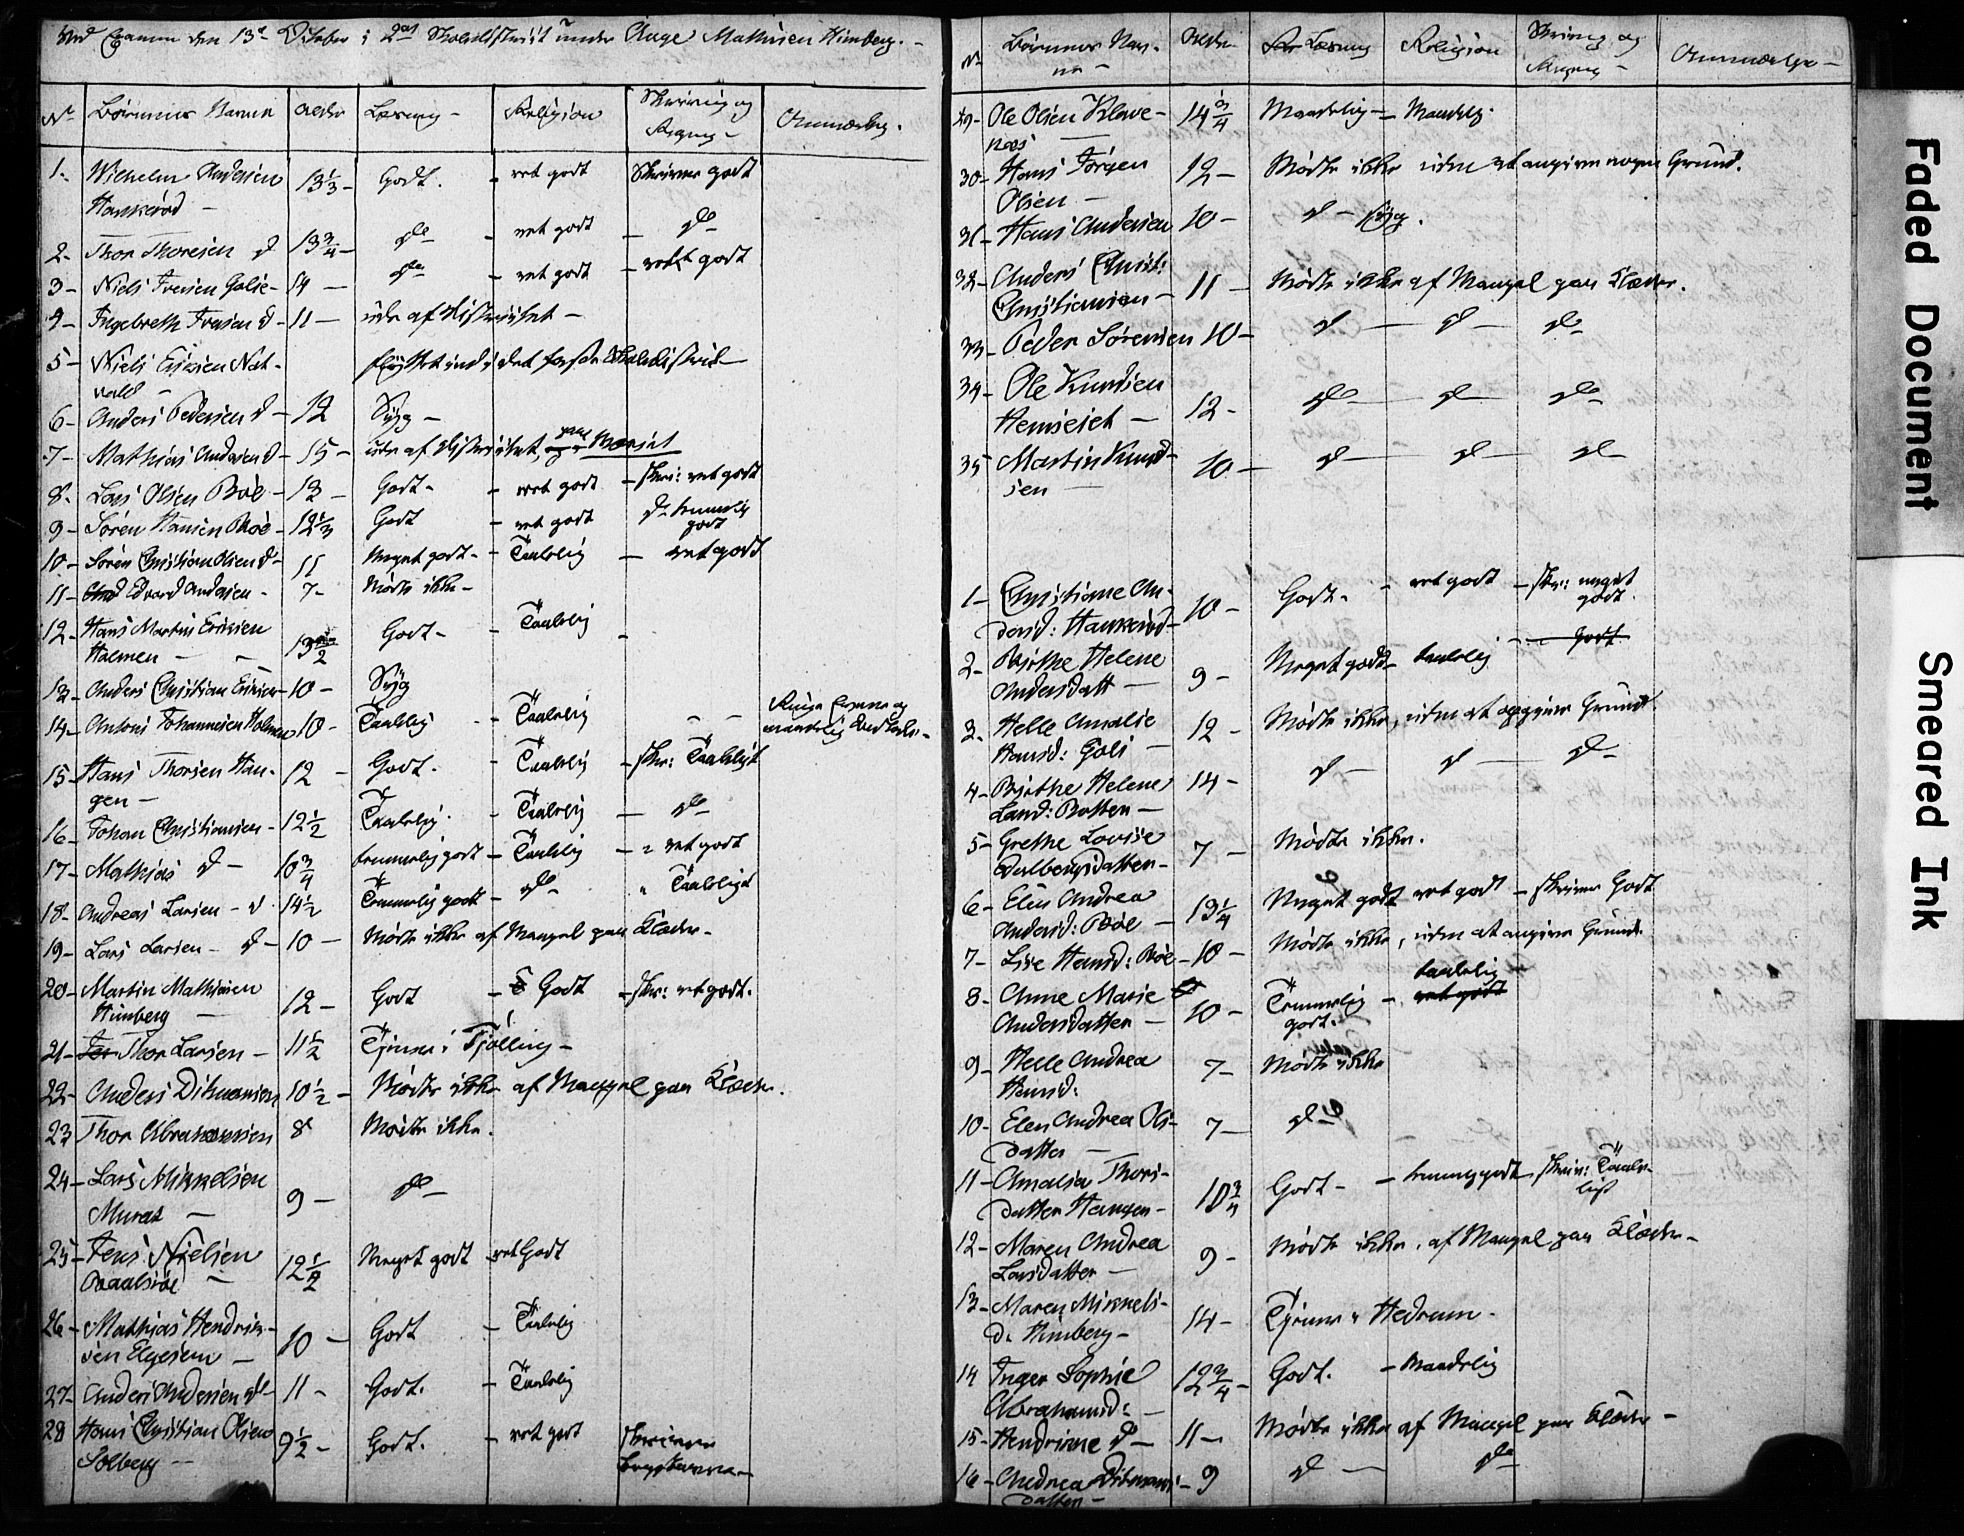 Ved Examen den 13de October i 2det Skoledistrict under Aage Mathisen Himberg.
No Børnenes Navne Alder Læsning Religion Skrivning og Regning Anmærkn.
1. Wilhelm Andersen Hankerød 13 1/3 Godt. ret godt Skriver godt
2. Thor Thoresen do 13 3/4 do ret godt do
3 Niels Iversen Golie 14 do ret godt ret godt
4 Ingebreth Iversen do 11 ude af Districtet
5 Niels Ericsen Nat-
vald flyttet ind i det første Skoledistrict
6 Anders Pedersen do 12 Syg
7 Mathias Andersen do 15 ude af Districtet,
8. Lars Olsen Bøe 13 Godt ret godt skr: ret godt
9 Søren Hansen Bøe 12 1/3 Godt ret godt do temmelig godt
10 Søren Christian Olsen do 11 Meget godt Taalelig ret godt
11 Edvard Andersen 7 Mødte ikke
12 Hans Martin Ericsen
Holmen 13 1/2 Godt Taalelig
13 Anders Christian Ericsen 10 Syg
14 Antoni Johannesen Holmen 10 Taalelig Taalelig Ringe Evner og
maadelig
15 Hans Thorsen Hau-
gen 12 Godt. Taalelig skr: Taaleligt
16 Johan Christiansen 12 1/2 Taalelig. Taalelig do
17 Mathias do 10 3/4 temmelig godt Taalelig " ret godt
18 Andreas Larsen do 14 1/2 Temmelig godt do " Taaleligt
19 Lars Larsen do 10 Mødte ikke af Mangel paa Klæder
20 Martin Mathisen
Himberg 12 Godt Godt skr: ret godt.
21 Thor Larsen 11 1/2 Tjener i Tjølling
22 Anders Ditmansen 10 1/2 Mødte ikke af Mangel paa Klæder.
23 Thor Abrahamsen 8 Mødte ikke.
24 Lars Mikkelsen
Muraa 9 do
25 Jens Nielsen
12 1/2 Meget godt ret Godt
26 Mathias Hendrik-
sen Elgesem 10 Godt Taalelig
27 Anders Andersen do 11 Godt. Taalelig
28 Hans Christian Olsen
Solberg 9 1/2 Godt. ret godt Skriver
Bogstaverne
No Børnenes Nav-
ne Alder Læsning Religion Skrivning og
Regning Anmærkn
29 Ole Olsen Klave-
næs 14 3/4 Maadelig Maadelig.
30 Hans Jørgen
Olsen 12 Mødte ikke uden at angive nogen Grund.
31 Hans Andersen 10 do syg.
32 Anders Christ:
Christiansen 11 Mødte ikke af Mangel paa Klæder.
33 Peder Sørensen 10 do do do
34 Ole Knudsen
Hemseiet 12 do do do
35 Martin Knud-
sen 10 do do do
1 Christiane An-
dersd: Hankerød 10 Godt. ret godt skr: meget
godt.
2 Birthe Helene
Andersdatt 9 Meget godt taalelig Godt
3. Helle Amalie
Hansd: Goli 12 Mødte ikke, uden at opgive Grund
4 Birthe Helene
Lamd: Botten 14 do do do
5 Grethe Lovise
Dalbergsdatter 7 Mødte ikke.
6 Elen Andrea
Andersd: Bøe 13 1/4 Meget godt ret godt skriver Godt
7 Lise Hansd: Bøe 10 Mødte ikke, uden at angive Grund.
8 Anne Marie
Andersdatter 10 Temmelig
godt. taalelig
ret godt
9 Helle Andrea
Hansd: 7 Mødte ikke
10 Elen Andrea Ols-
datter 7 do
11 Amalia Thors-
datter Haugen 10 3/4 Godt temmelig godt skriv: Taale-
ligt
12 Maren Andrea
Larsdatter 9 Mødte ikke, af Mangel paa Klæder
13 Maren Mikkels-
d. Himberg 14 Tjener i Hedrum.
14 Inger Sophie
Abrahamsd: 12 3/4 Godt. Maadelig
15 Hendrine do 11 Mødte ikke af Mangel paa Klæder
16 Andrea Ditmans-
datter 9 do do
Faded Document
Smeared Ink